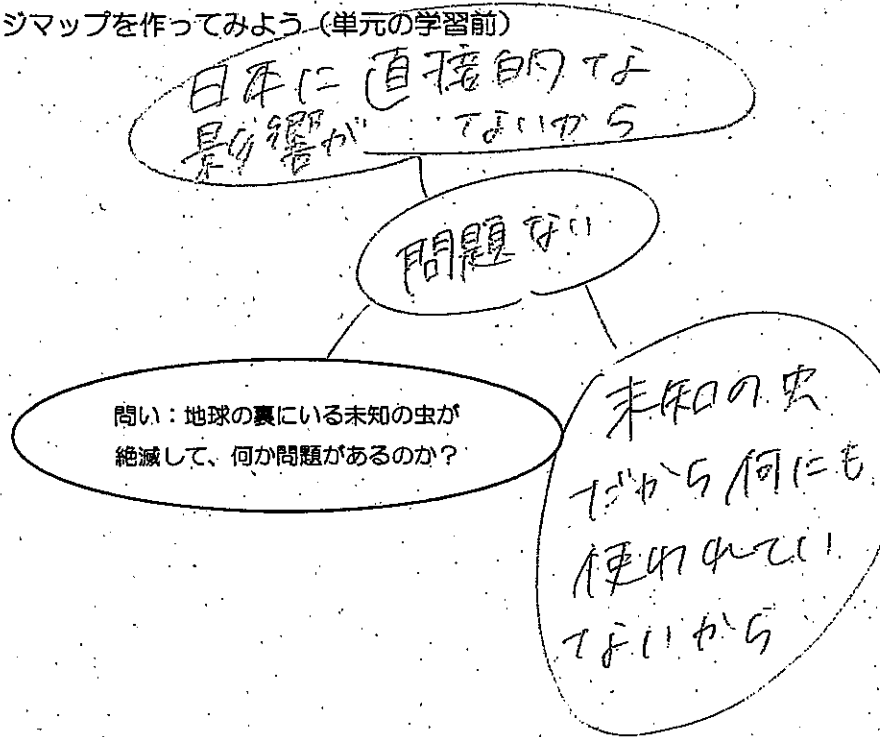 ジマップを作ってみよう（単元の学習前）
日本に直接的な
影響が　ないから
問題ない
問い：地球の裏にいる未知の虫が
絶滅して、何か問題があるのか？
未知の虫
だから何にも
使われてい
ないから